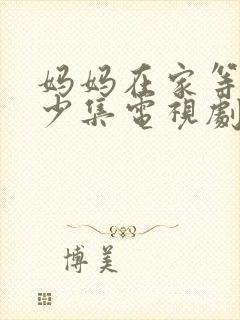 妈妈在家等
少集電視劇
博美